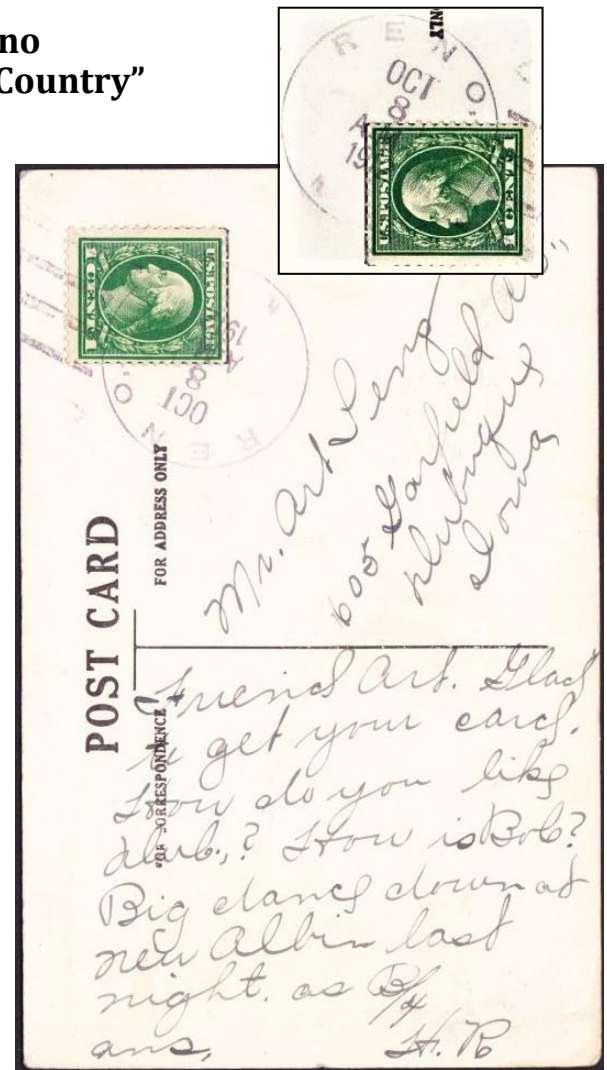 no
Country”
ONLY
RENO
OCT
8
A
19
U.S. POSTAGE
1 CENT 1
U.S. POSTAGE
1 CENT 1
19
A
8
OCT
RENO
POST CARD
FOR ADDRESS ONLY
FOR CORRESPONDENCE
Mr. Art Leng
605 Garfield Av.,
Dubuque
Iowa
Friend Art. Glad
to get your card.
How do you like
dub.,? How is Bob?
Big dance down at
new Albin last
night. as B/4
ans, H. R